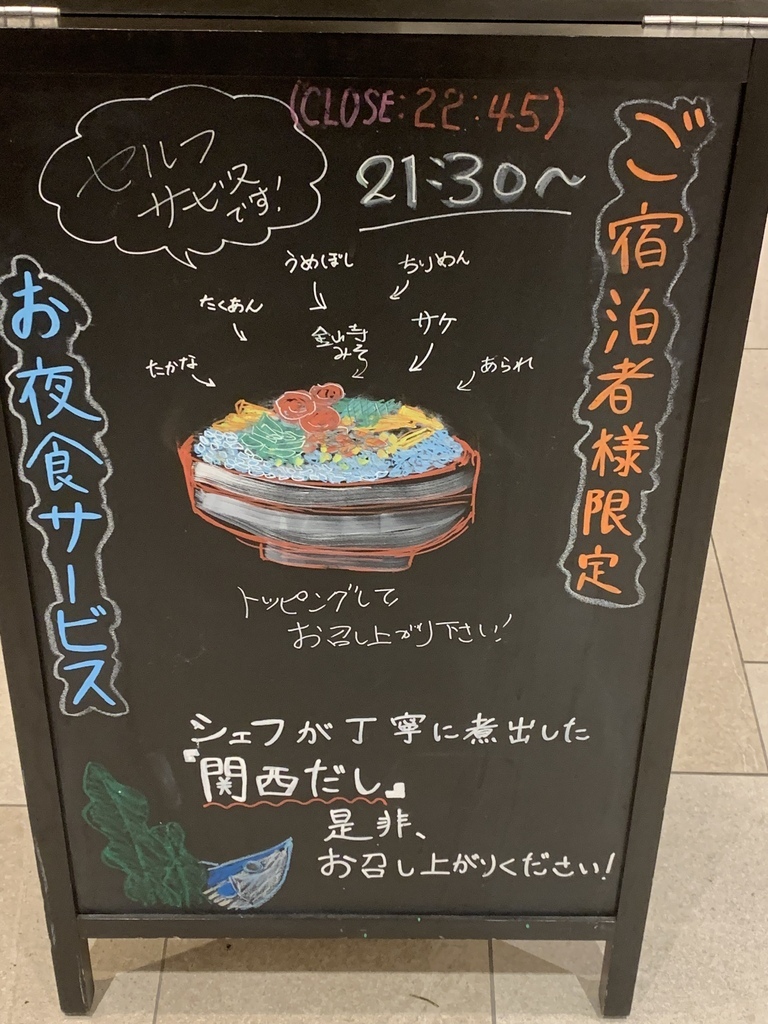 (CLOSE:22:45)
21:30〜
ご宿泊者様限定
セルフ
サービス
です!
お夜食サービス
うめぼし
ちりめん
たくあん
金山寺
みそ
サケ
たかな
あられ
トッピングして
お召し上がり下さい!
シェフが丁寧に煮出した
『関西だし』
是非、
お召し上がりください!